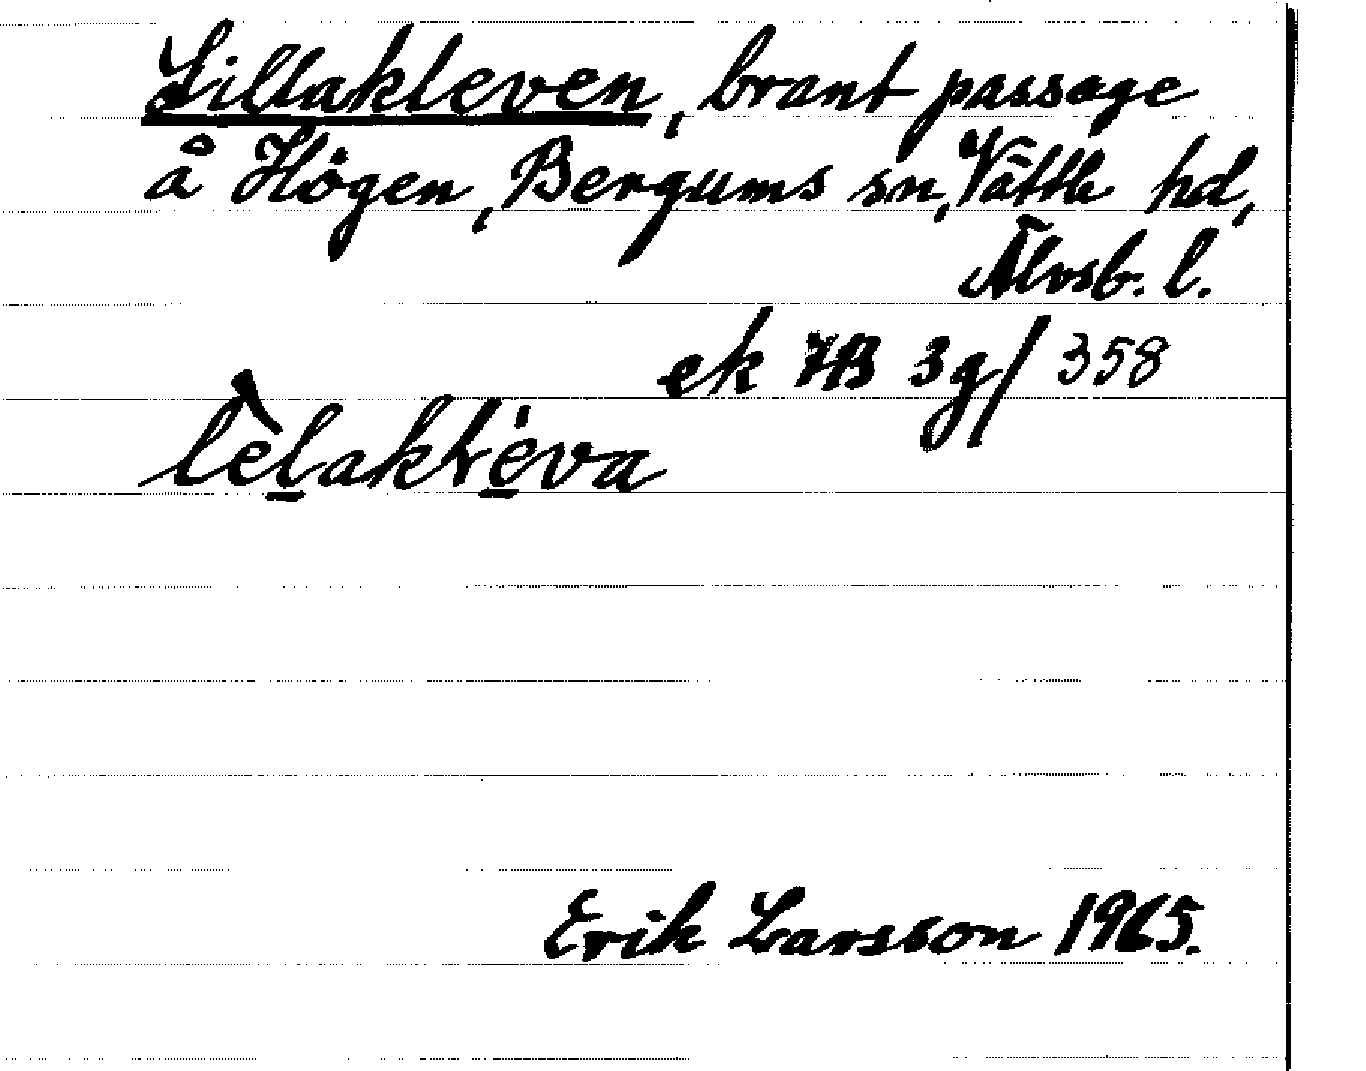 Lillakleven, brant passage
å Högen, Bergums sn, Vättle hd,
Älvsb. l.
ek 7B 3g/358
lèl̲akle̲̍va
Erik Larsson 1965.